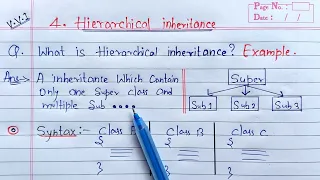 V.V.I
Page No.:
Date: / /
4. Hierarchical inheritance
Q. What is Hierarchical inheritance? Example.
Ans→ A inheritance Which Contain
Only one Super class and
multiple Sub ....
Super
Sub1 Sub2 Sub3
Syntax:- Class class B class C
{ { {
} } }